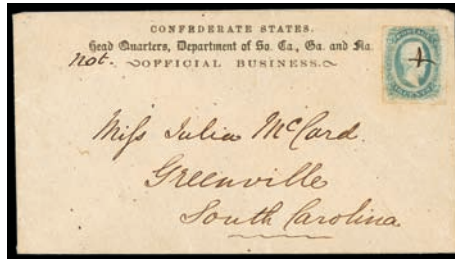 CONFRDERATE STATES.
Head Quarters, Department of So. Ca., Ga. and Fla.
not. OFFICIAL BUSINESS.
Miss Julia McCard.
Greenville
South Carolina